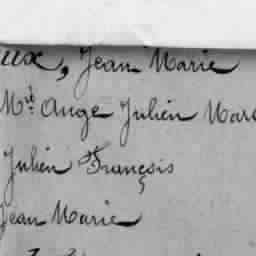 ux, Jean Marie
Mie Ange Julien Mar
Julien François
Jean Marie